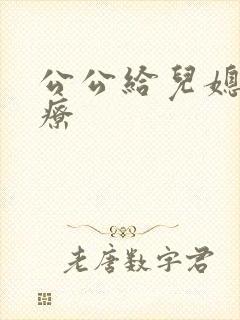 公公給兒媳
療
老唐數字君